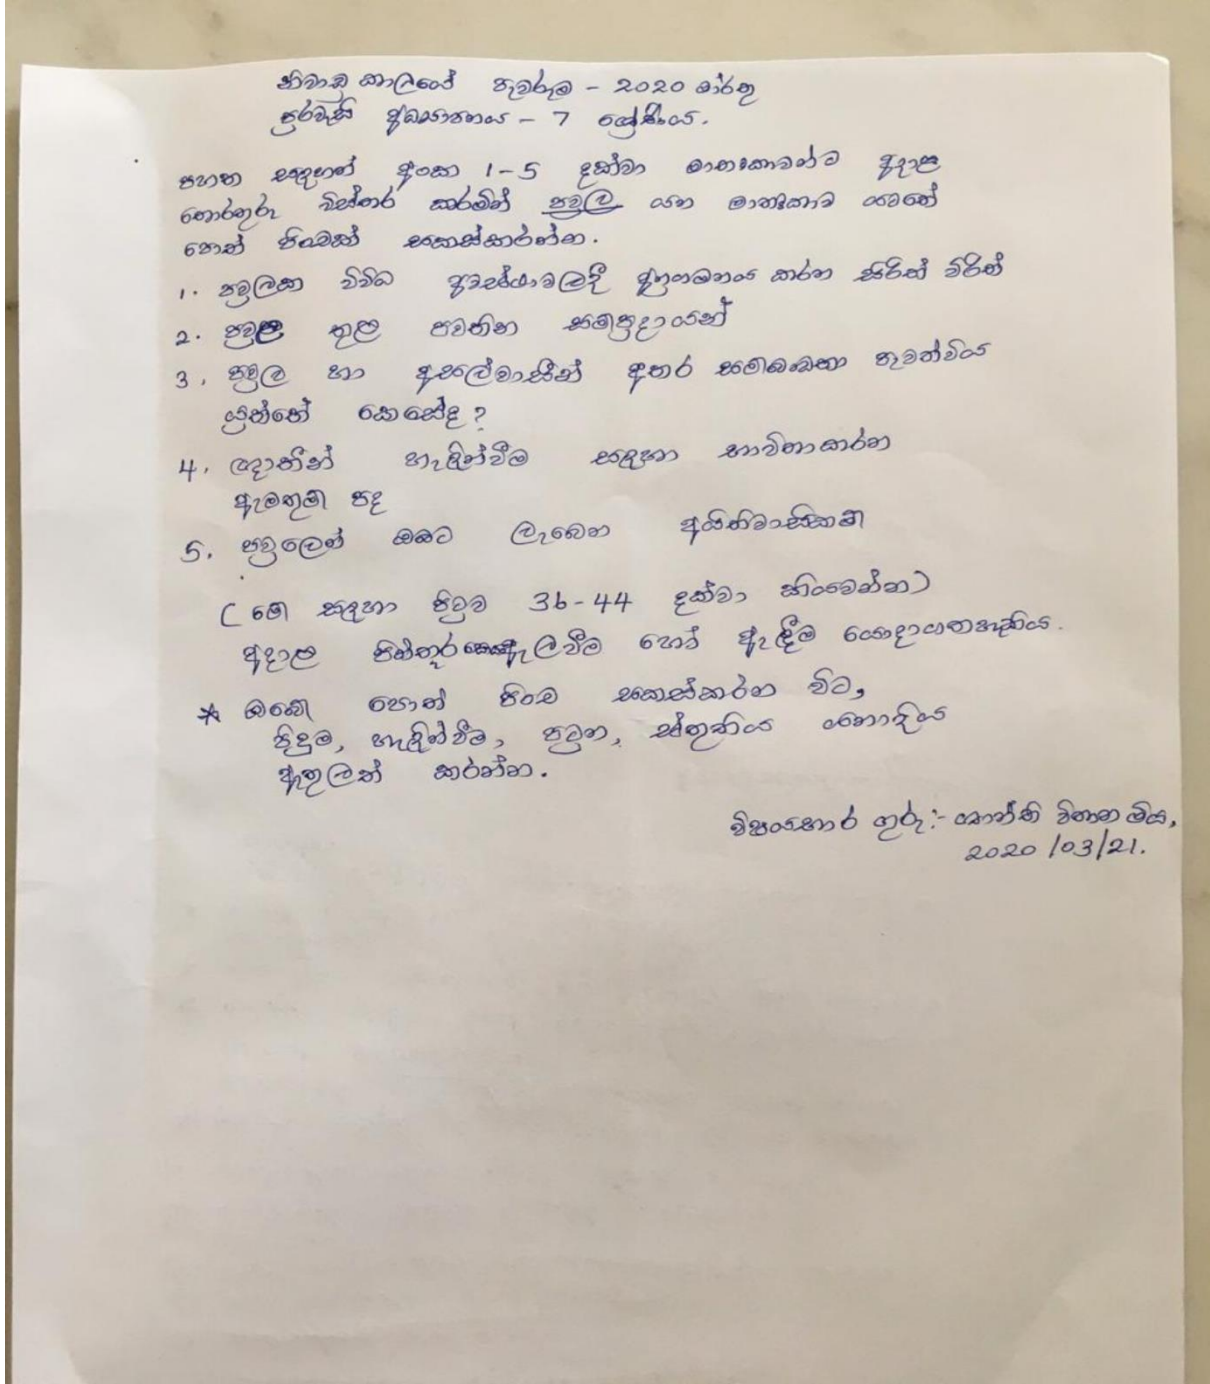 නිවාඩු කාලයේ පැවරුම - 2020 මාර්තු
පුරවැසි අධ්‍යාපනය - 7 ශ්‍රේණිය.
පහත සඳහන් අංක 1-5 දක්වා මාතෘකාවන්ට අදාළ
තොරතුරු විස්තර කරමින් පවුල යන මාතෘකාව යටතේ
පොත් පිංචක් සකස්කරන්න.
1. පවුලක විවිධ අවස්ථාවලදී අනුගමනය කරන සිරිත් විරිත්
2. පවුල තුළ පවතින සම්ප්‍රදායන්
3. පවුල හා අසල්වාසීන් අතර සම්බන්ධතා පැවත්විය
යුත්තේ කෙසේද?
4. ඥාතීන් හැඳින්වීම සඳහා භාවිතාකරන
ඇමතුම් පද
5. පවුලෙන් ඔබට ලැබෙන අයිතිවාසිකම්
(මේ සඳහා පිටුව 36-44 දක්වා කියවන්න)
අදාළ පින්තූර ඇලවීම හෝ ඇඳීම යොදාගතහැකිය.
* ඔබේ පොත් පිංච සකස්කරන විට,
පිදුම, හැඳින්වීම, පටුන, ස්තුතිය නොදිය
ඇතුලත් කරන්න.
විෂයභාර ගුරු:- ශාන්ති විතාන මිය,
2020/03/21.